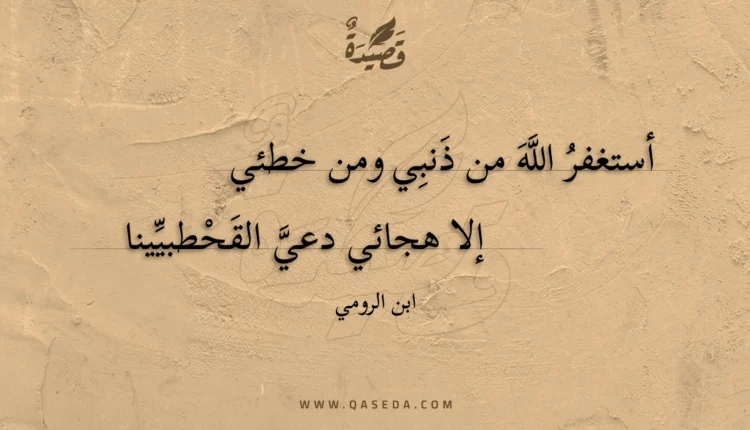 قَصِيدَةٌ
أستغفرُ اللَّهَ من ذَنبِي ومن خطئي
إلا هجائي دعيَّ القَحْطبيِّينا
ابن الرومي
WWW.QASEDA.COM